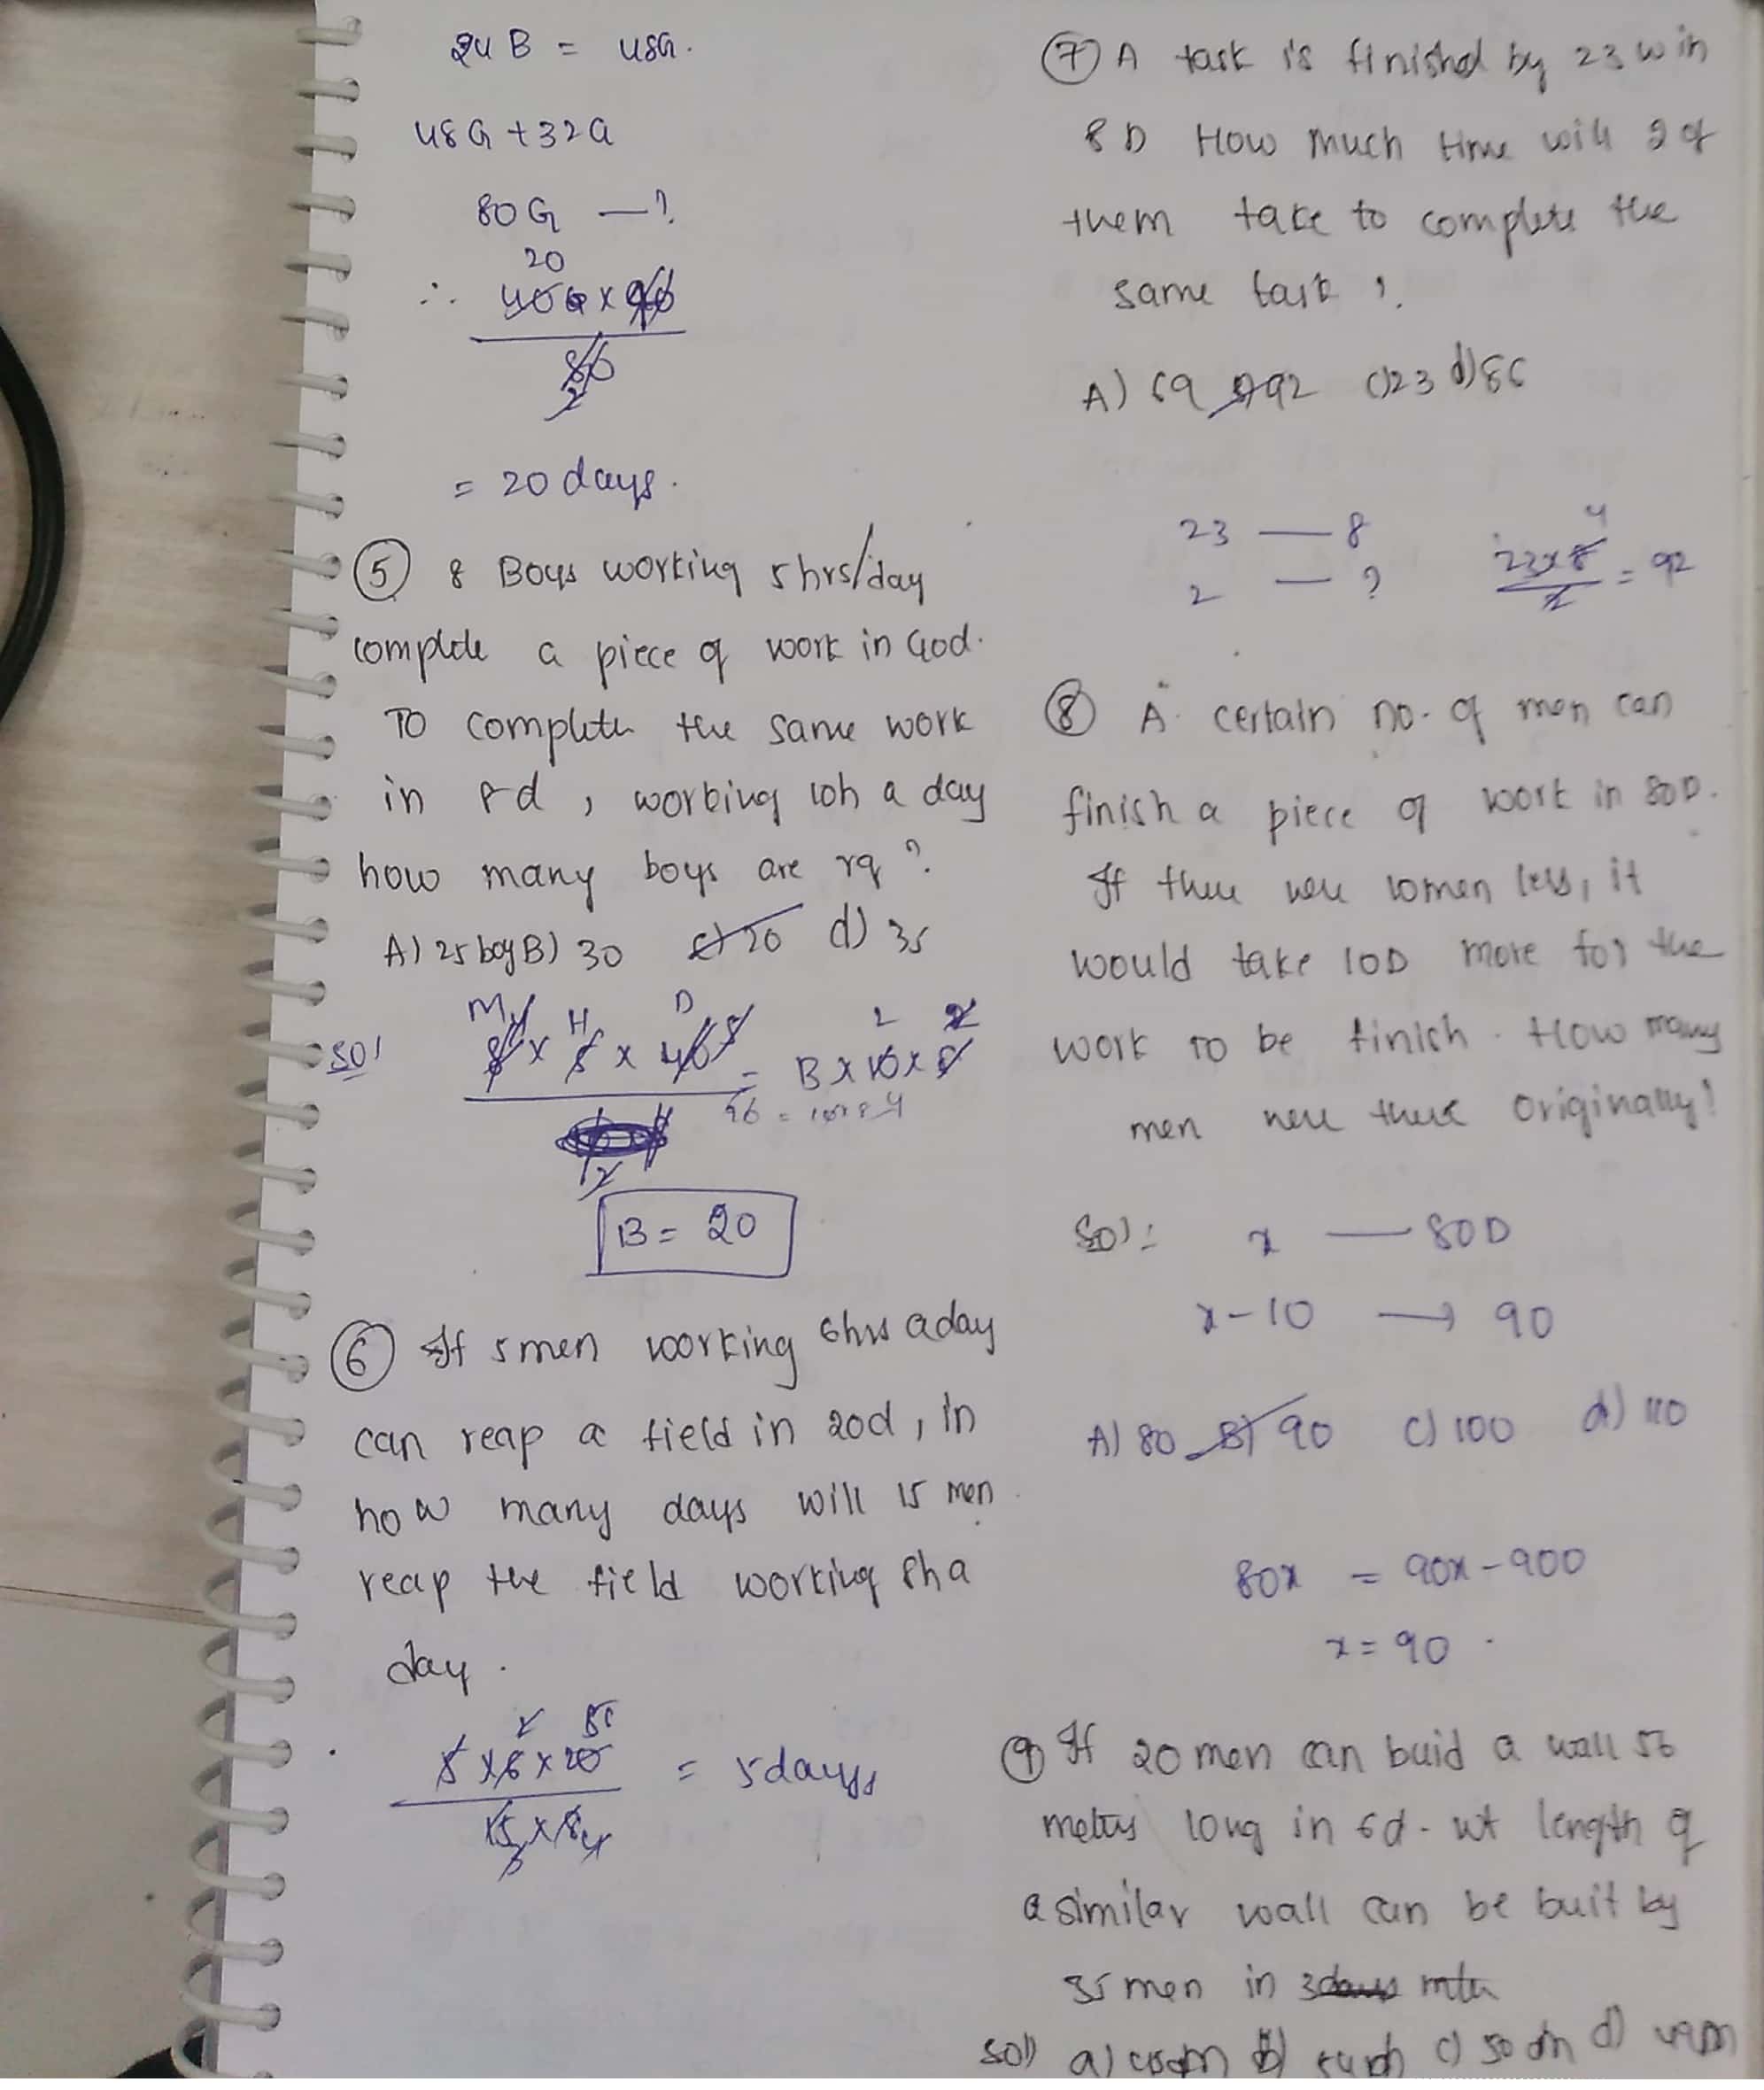 24 B = 48G.
48G + 32G
80G — ?
20
∴ 40G x 40
80
2
= 20 days.
⑤ 8 Boys working 5 hrs/day
complete a piece of work in 40d.
TO complete the same work
in 8d , working 10h a day
how many boys are rq ?
A) 25 boy B) 30 c) 20 d) 35
M H D
Sol 8 x 5 x 40 = B x 10 x 8
B = 20
⑥ If 5 men working 6hrs a day
can reap a field in 20d, in
how many days will 15 men
reap the field working 8h a
day.
5 x 6 x 20 = 5 days
15 x 8
⑦ A task is finished by 23 w in
8 D How much time will 2 of
them take to complete the
same task ?
A) 69 B) 92 c) 23 d) 86
23 — 8
2 — ?
23 x 8 = 92
2
⑧ A certain no. of men can
finish a piece of work in 80D.
If there were 10 men less, it
would take 10D more for the
work to be finish. How many
men were there originally?
Sol: x — 80D
x - 10 → 90
A) 80 B) 90 c) 100 d) 110
80x = 90x - 900
x = 90.
⑨ If 20 men can buid a wall 56
long in 6d. wt length of
a similar wall can be buit by
35 men in 3
Sol) a) c) 50 d)